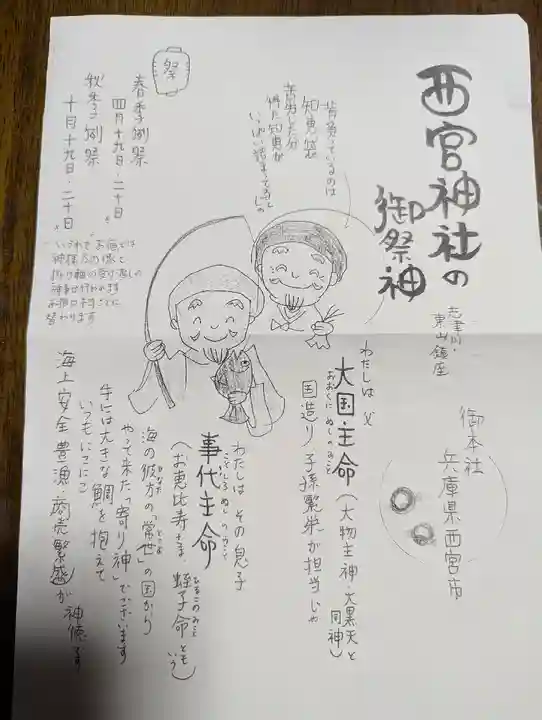 西宮神社の
御祭神
志津川・
東山鎮座
御本社
兵庫県西宮市
背負っているのは
知恵袋
苦労した分
得た知恵が
いっぱい詰まって居るの
祭
春季例祭
四月十九日・二十日
秋季例祭
十月十九日・二十日
いづれも お宿では
神様及の儀と
振り軸の受け渡しの
神事が行われます
お宿は 村ごとに
替わります
わたしは 父
大国主命(大物主神・大黒天と
同神)
おおくにぬしのみこと
国造り 子孫繁栄が担当じゃ
わたしは その息子
事代主命
ことしろぬしのみこと
(お恵比寿さま、蛭子命ともいう)
ひるこのみこと
海の彼方の「常世」の国から
かなた
とこよ
やって来た「寄り神」でございます
手には大きな鯛を抱えて
いつもにこにこ
海上安全 豊漁・商売繁盛が神徳です